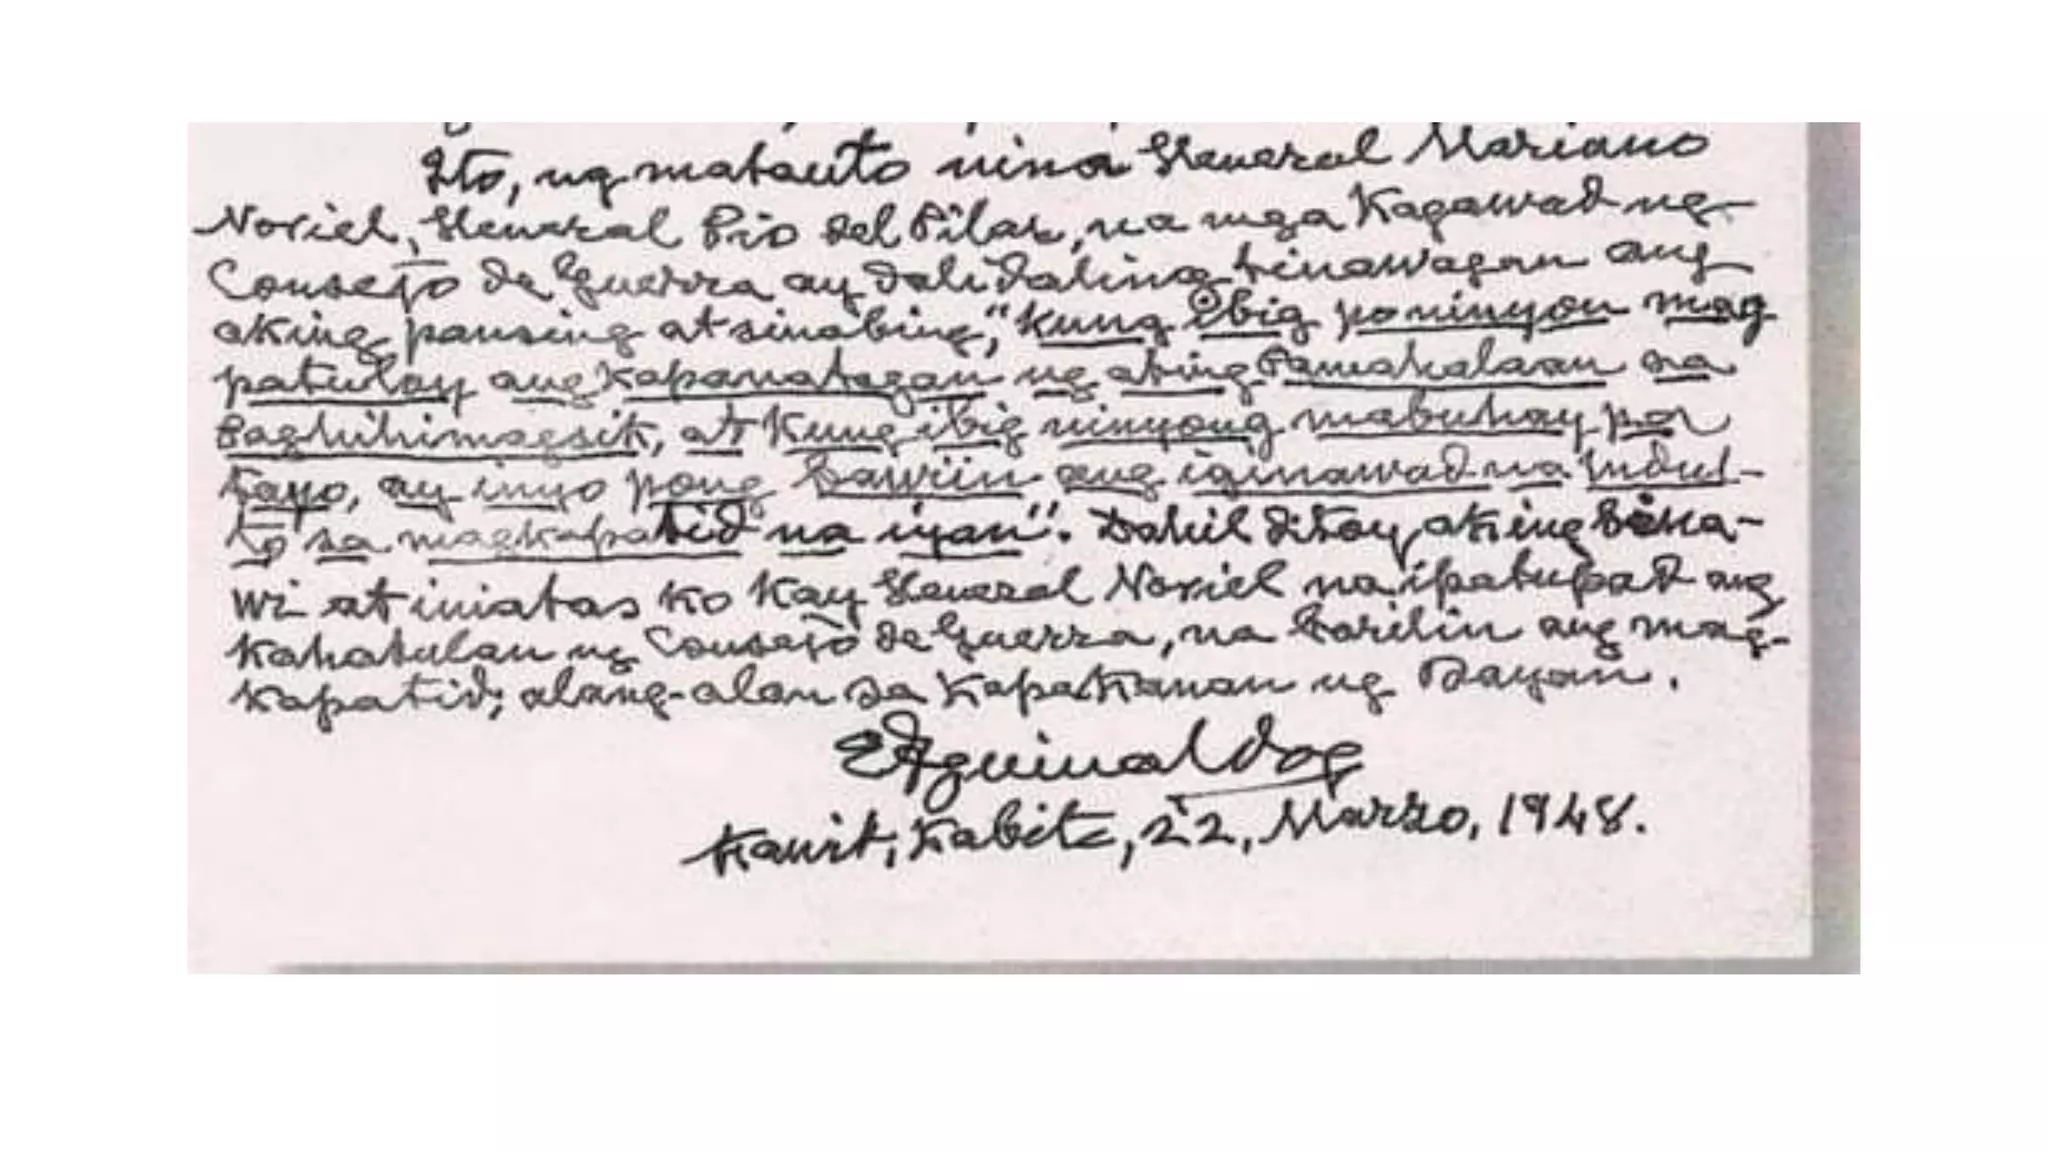 Ito, ng matanto nina General Mariano
Noriel, General Pio del Pilar, na mga Kagawad ng
Consejo de Guerra ay dalidaling tinawagan ang
aking pansing at sinabing, "kung ibig po ninyong mag
patuloy ang kapanatagan ng ating Pamahalaan sa
Paghihimagsik, at kung ibig ninyong mabuhay pa
tayo, ay inyo pong bawiin ang iginawad na Indul-
to sa magkapatid na iyan". Dahil dito'y aking bina-
wi at iniatas ko kay General Noriel na ipatupad ang
kahatulan ng Consejo de Guerra, na barilin ang mag-
kapatid; alang-alan sa kapakanan ng Bayan.
EAguinaldo
Kawit, Kabite, 22, Marzo, 1948.